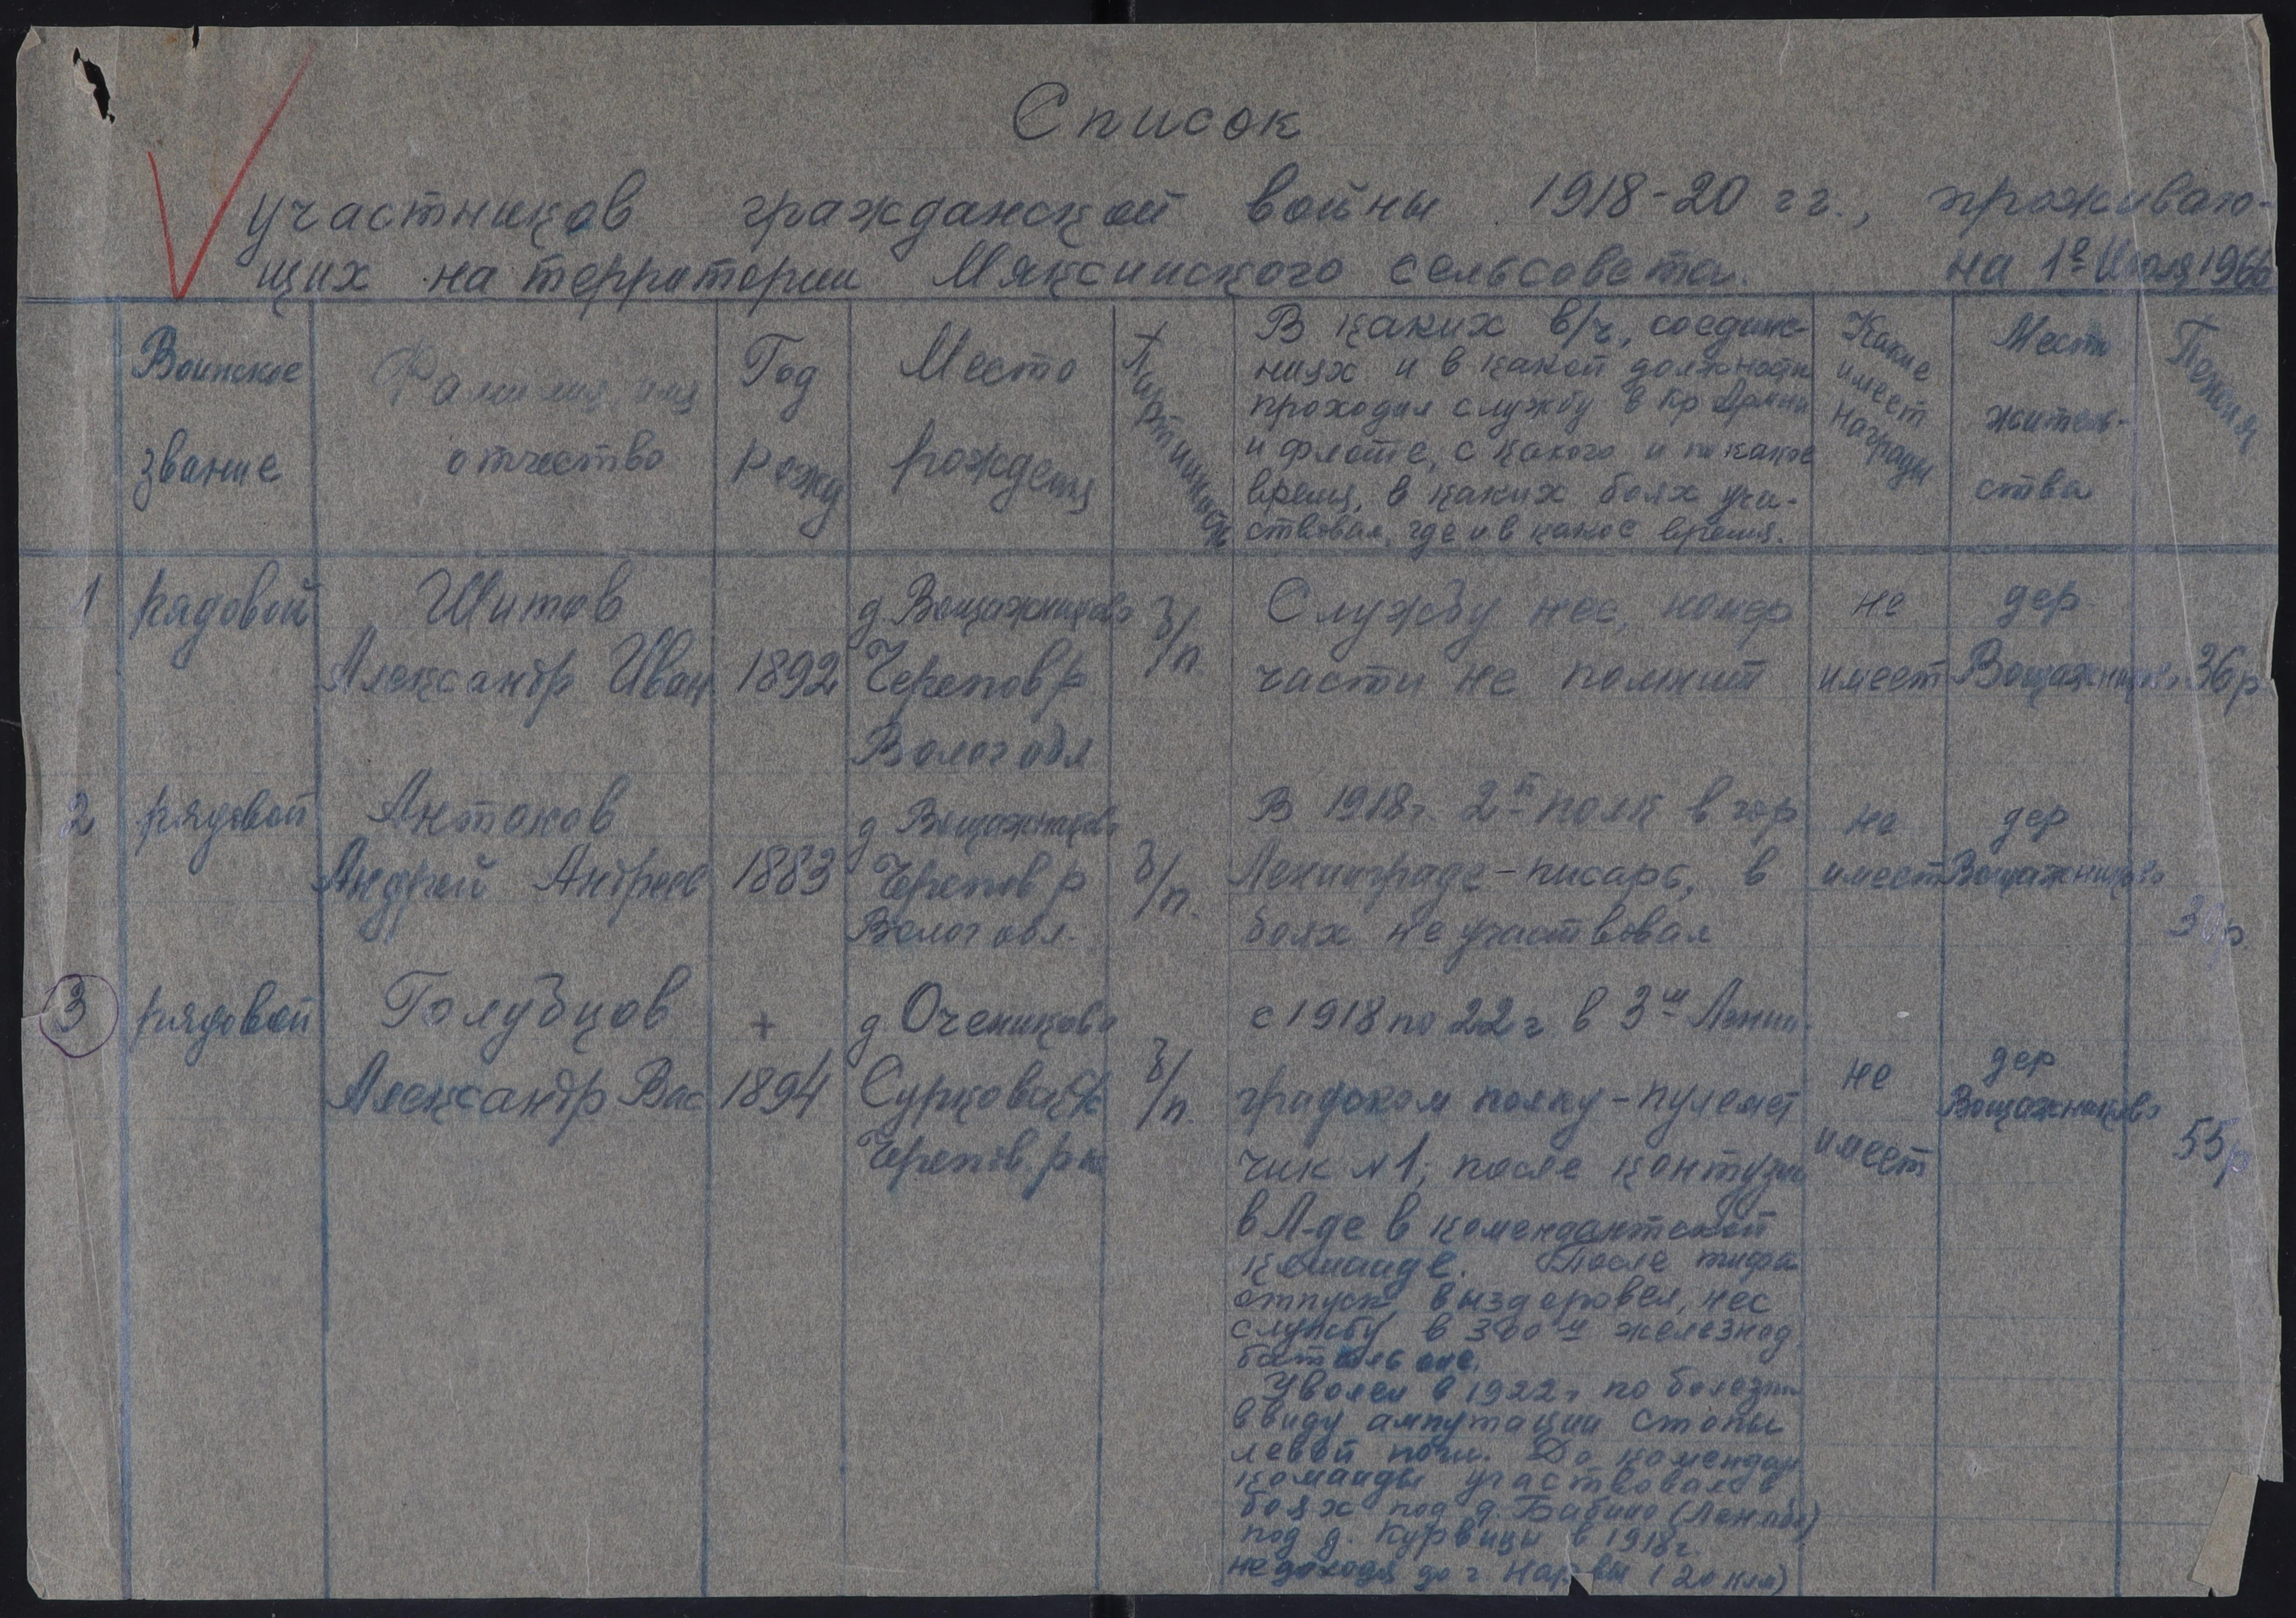 Список
участников гражданской войны 1918-20 гг., проживаю-
щих на территории Мяксинского сельсовета. на 1е Июля 1966
Воинское
звание
Фамилия, имя
отчество
Год
рожд
Место
рождения
Партийность
В каких в/ч, соедине-
ниях и в какой должности
проходил службу в Кр Армии
и флоте, с какого и по какое
время, в каких боях уча-
ствовал, где и в какое время.
Какие
имеет
награды
Место
житель-
ства
Пенсия
1 рядовой
Шитов
Александр Иван
1892
д. Вощажниково
Черепов р
Волог обл
б/п.
Службу нес, номер
части не помнит
не
имеет
дер
Вощажников
36 р
2 рядовой
Антонов
Андрей Андреев
1883
д Вощажниково
Черепов р
Волог обл.
б/п.
В 1918г. 2й полк в гор
Ленинграде - писарь, в
боях не участвовал
не
имеет
дер
Вощажниково
р
3 рядовой
Голубцов
Александр Вас
+
1894
д Оченикова
Сурковс/с
Черепов. р на
б/п.
с 1918 по 22 г в 3м Ленин-
градском полку - пулемет
чик №1, после контузии
в Л-де в комендантской
команде. После тифа
отпуск, выздоровел, нес
службу в 300м железнод
батальоне.
Уволен в 1922г по болезни
ввиду ампутации стопы
левой ноги. До комендан
команды участвовал в
боях под д. Бабино (Лен обл)
под д. Курвицы в 1918г.
не доходя до г Нарвы (20 клм)
не
имеет
дер
Вощажниково
55р